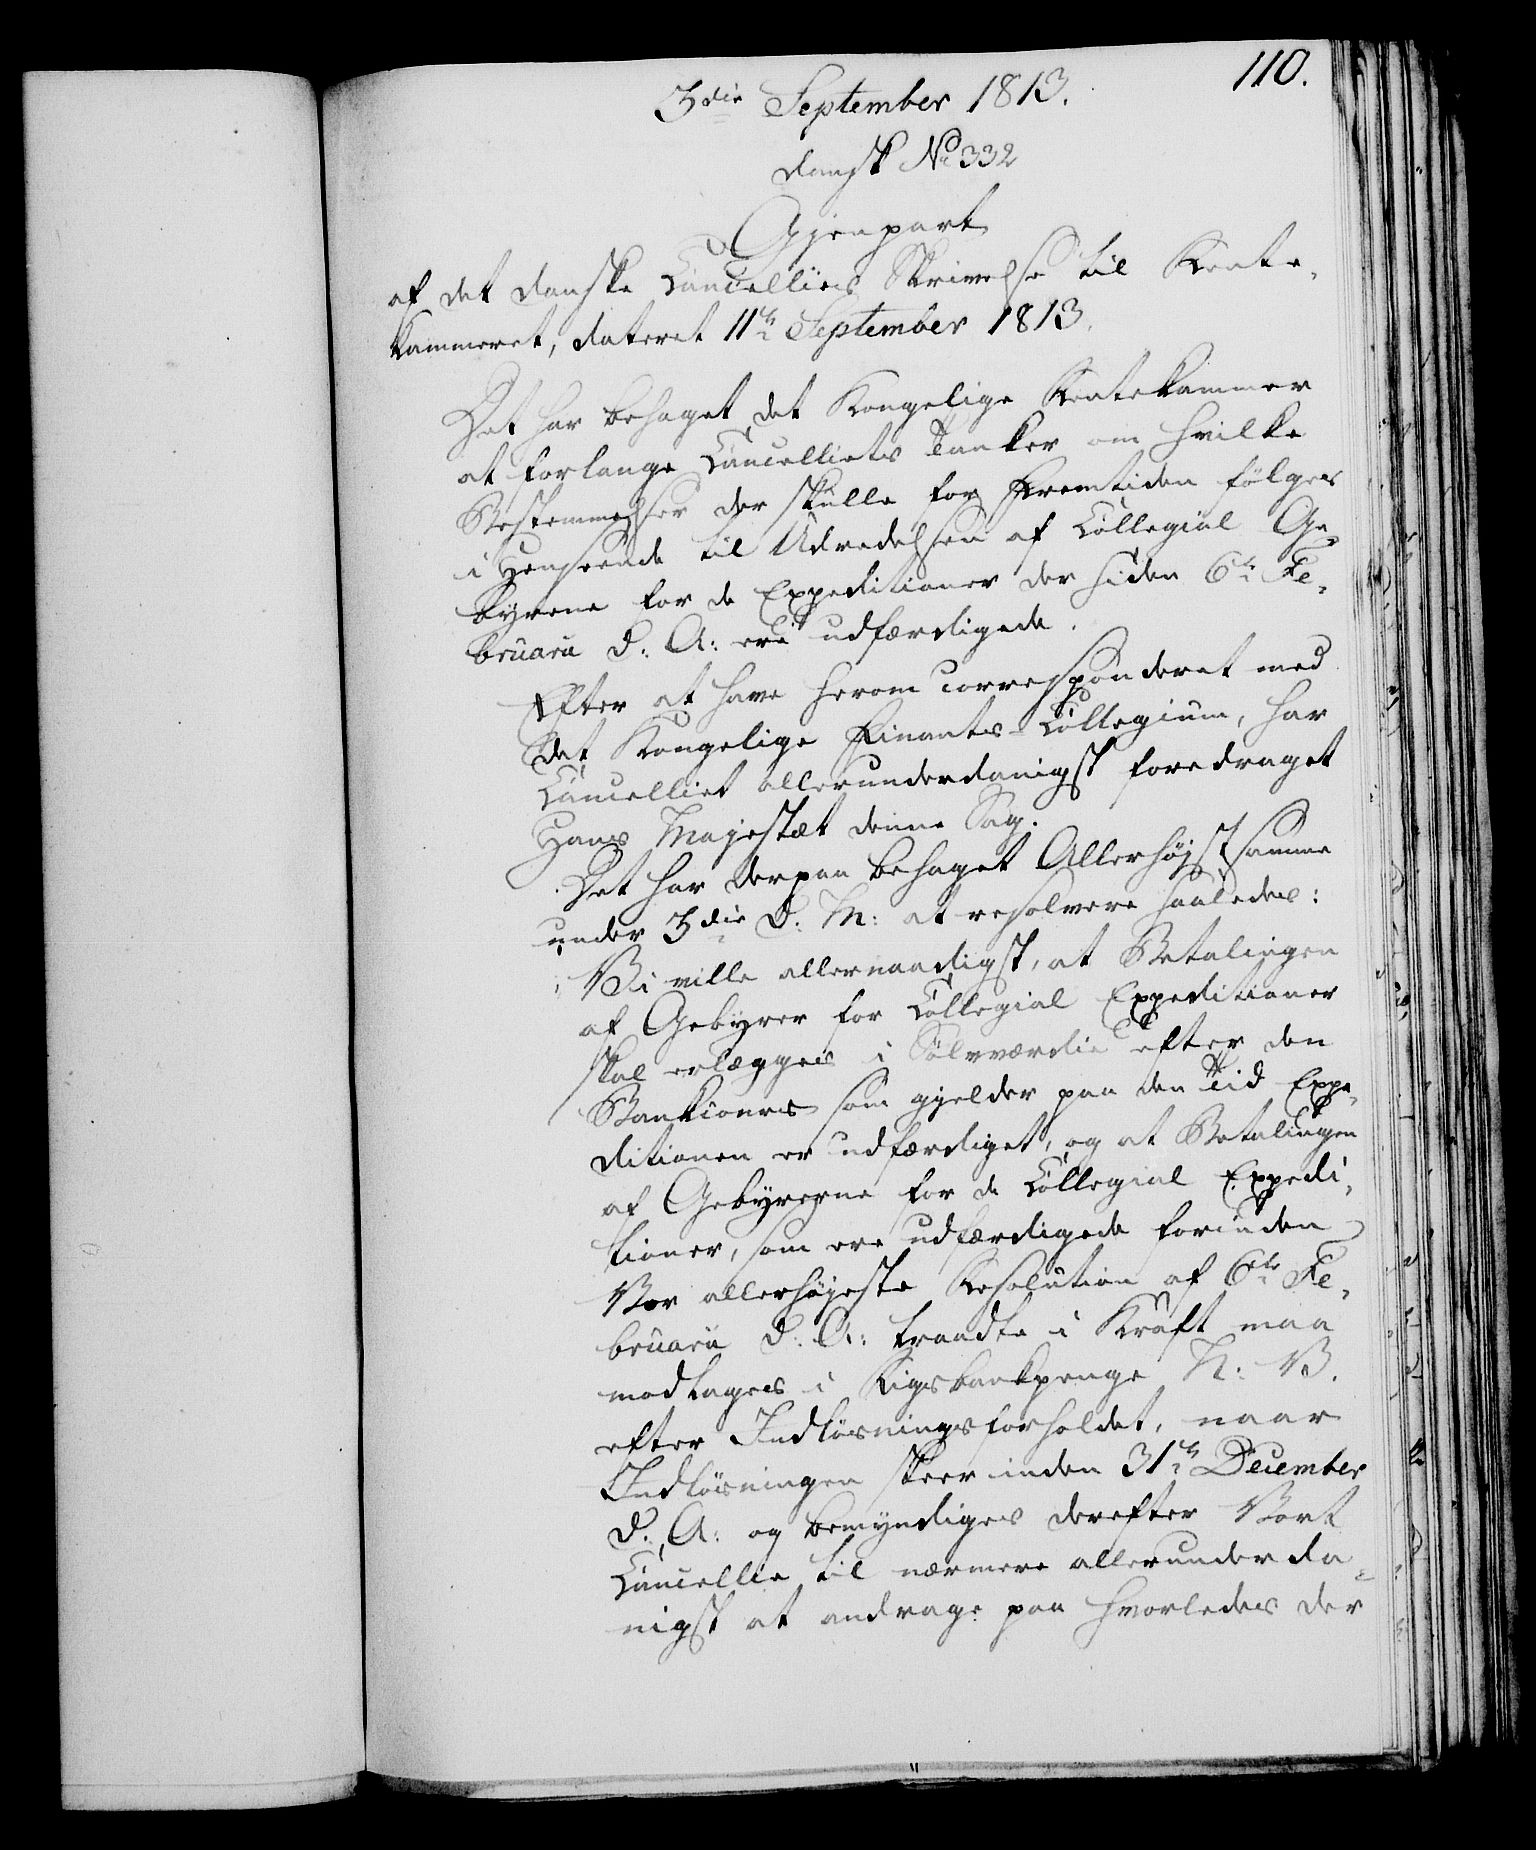 110.
3die September 1813.
dansk No 332
Gjenpart
af det danske Cancellies Skrivelse til Rente-
kammeret, dateret 11te September 1813.
Det har behaget det Kongelige Rentekammer
at forlange Cancelliets Tanker om hvilke
Bestemmelser der skulle for Fremtiden følges
i Henseende til Udredelsen af Collegial Ge-
byrene for de Expeditioner der siden 6te Fe-
bruarii d: A: ere udfærdigede.
Efter at have herom corresponderet med
det Kongelige Finants-Collegium, har
Cancelliet allerunderdanigst foredraget
Hans Majestæt denne Sag.
Det har derpaa behaget Allerhøjstsamme
under 3die d: M: at resolvere saaledes:
Vi ville allernaadigst, at Betalingen
af Gebyrer for Collegial Expeditioner
skal erlægges i Sølvværdie efter den
Bankcours som gjelder paa den Tid Expe-
ditionen er udfærdiget, og at Betalingen
af Gebyrerne for de Collegial Expedi-
tioner, som ere udfærdigede forinden
Vor allerhøjeste Resolution af 6te Fe-
bruarii d: A: traadte i Kraft maa
modtages i Rigsbankpenge N: V.
efter Indløsningsforholdet, naar
Indløsningen skeer inden 31te December
d: A: og bemyndiges derefter Vort
Cancellie til nærmere allerunderda-
nigst at andrage paa hvorledes der